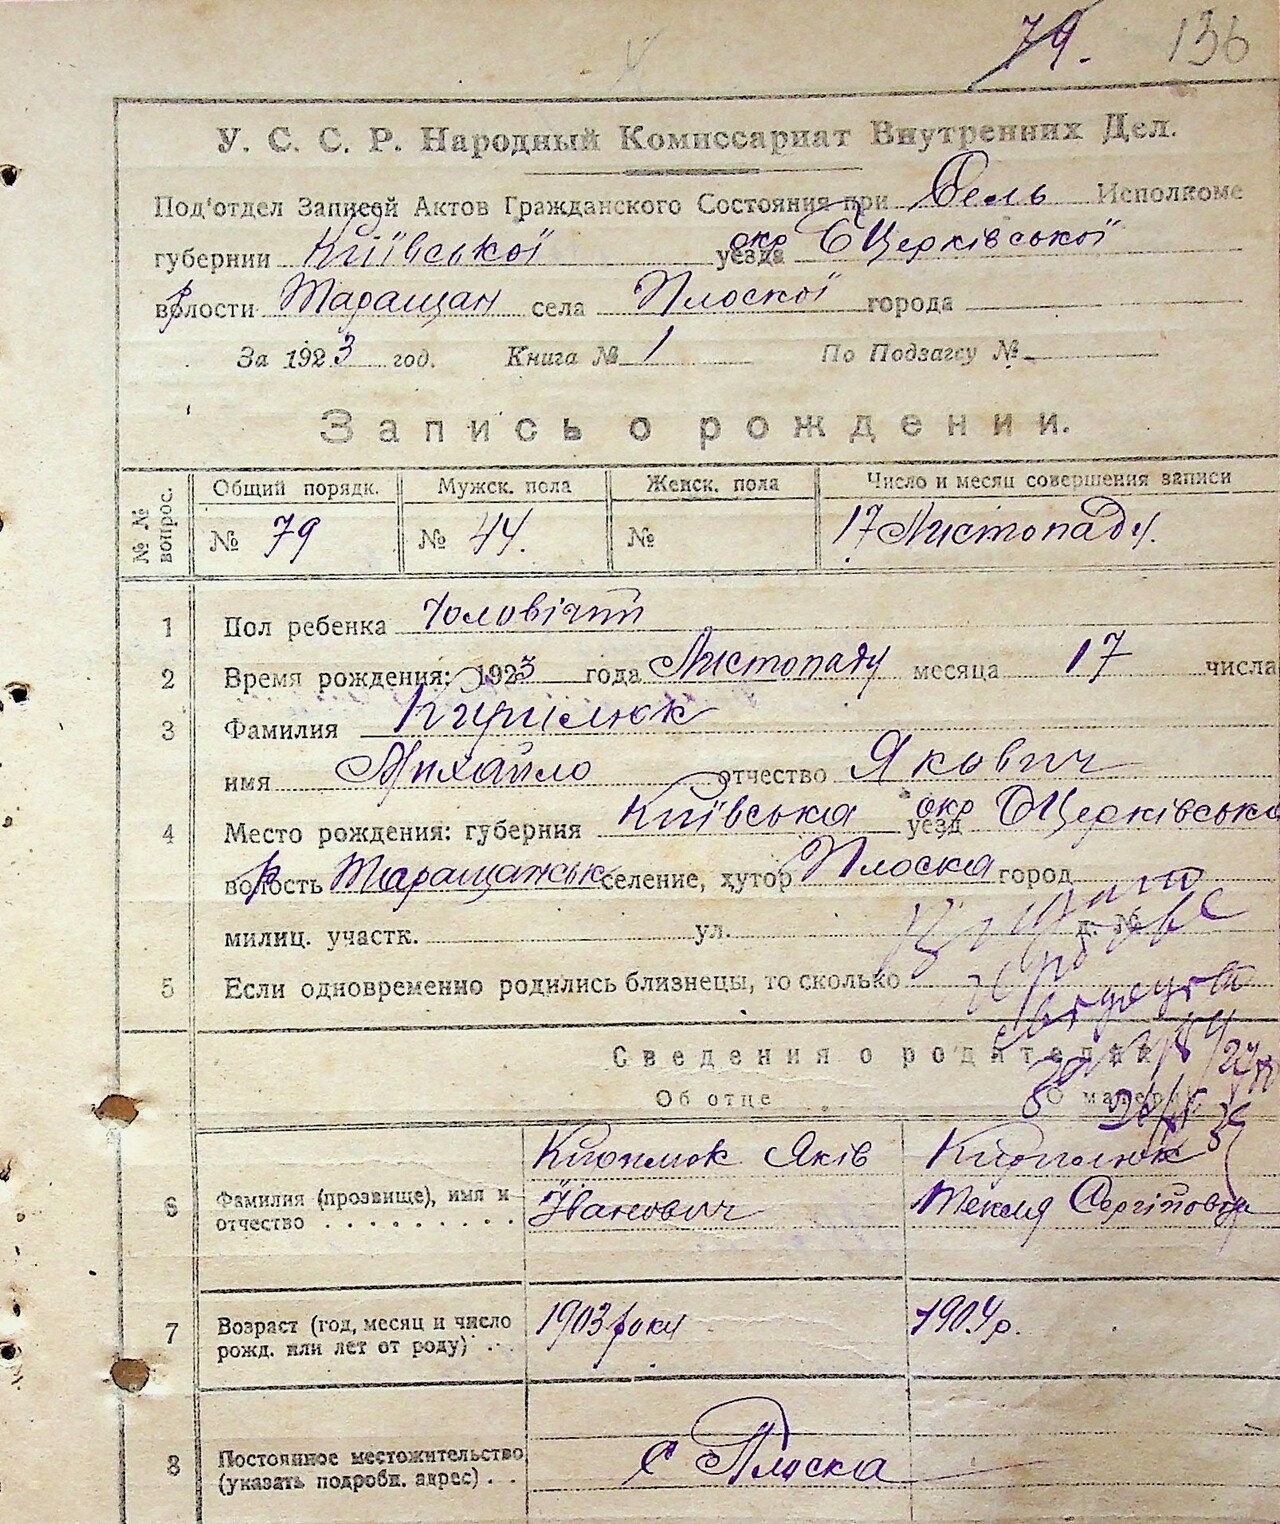 79. 136
У. С. С. Р. Народный Комиссариат Внутренних Дел.
Под'отдел Записей Актов Гражданского Состояния при Сель Исполкоме
губернии Київської уезда окр БЦерківської
волости р Таращан села Плоскої города
За 1923 год. Книга № 1 По Подзагсу №
Запись о рождении.
№ № вопрос. Общий порядк. Мужск. пола Женск. пола Число и месяц совершения записи
№ 79 № 44. № 17 Листопаду.
1 Пол ребенка Чоловічий
2 Время рождения: 1923 года Листопаду месяца 17 числа
3 Фамилия Кирилюк
имя Михайло отчество Якович
4 Место рождения: губерния Київська уезд окр БЦерківська
волость р Таращанськ селение, хутор Плоска город
милиц. участк. ул. д. №
5 Если одновременно родились близнецы, то сколько
Сведения о родителях
Об отце О матери
Кирилюк Яків Кирилюк
6 Фамилия (прозвище), имя и Іванович Текля Сергіївна
отчество
7 Возраст (год, месяц и число 1903 року 1904 р.
рожд. или лет от роду)
8 Постоянное местожительство с Плоска
(указать подробн. адрес)